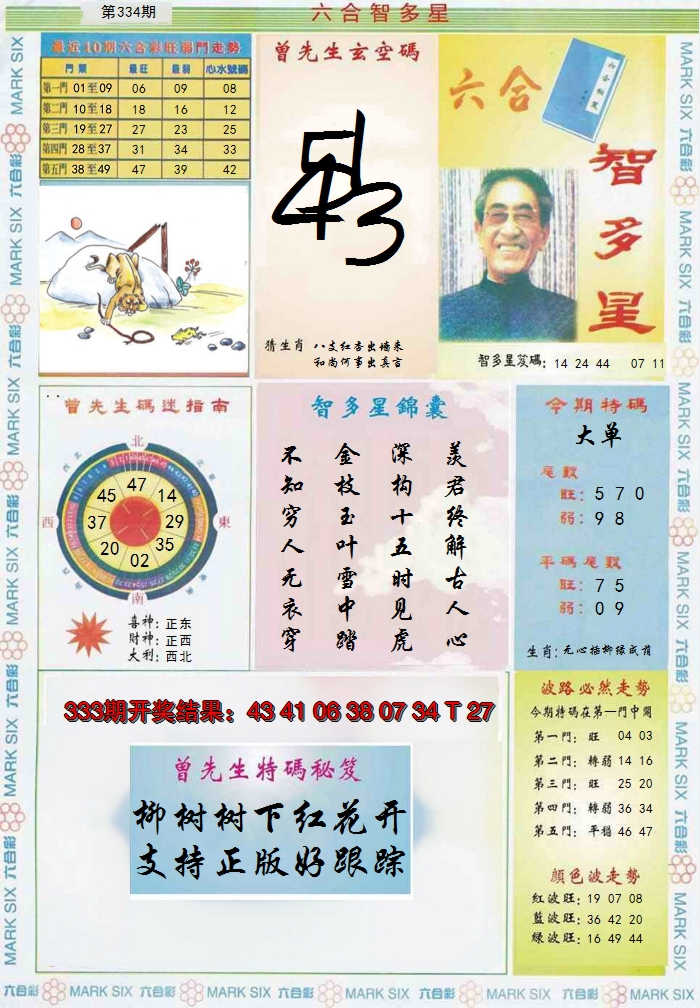 第334期
六合智多星
最近10期六合彩旺弱門走勢
門類 最旺 最弱 心水號碼
第一門 01至09 06 09 08
第二門 10至18 18 16 12
第三門 19至27 27 23 25
第四門 28至37 31 34 33
第五門 38至49 47 39 42
曾先生玄空碼
猜生肖 八支红杏出墙来
和尚何事出真言
六合
智多星
智多星笈碼: 14 24 44 07 11
曾先生碼迷指南
北
西
東
南
47
14
29
35
02
20
37
45
喜神: 正东
財神: 正西
大利: 西北
智多星錦囊
羡君终解古人心
深构十五时见虎
金枝玉叶雪中踏
不知穷人无衣穿
今期特碼
大单
尾數
旺: 5 7 0
弱: 9 8
平碼尾數
旺: 7 5
弱: 0 9
生肖: 无心插柳缘成荫
333期开奖结果：43 41 06 38 07 34 T 27
曾先生特碼秘笈
柳树树下红花开
支持正版好跟踪
波路必然走勢
今期特碼在第一門中開
第一門: 旺 04 03
第二門: 轉弱 14 16
第三門: 旺 25 20
第四門: 轉弱 36 34
第五門: 平穩 46 47
顏色波走勢
紅波旺: 19 07 08
藍波旺: 36 42 20
綠波旺: 16 49 44
六合彩 MARK SIX 六合彩 MARK SIX 六合彩 MARK SIX 六合彩 MARK SIX 六合彩